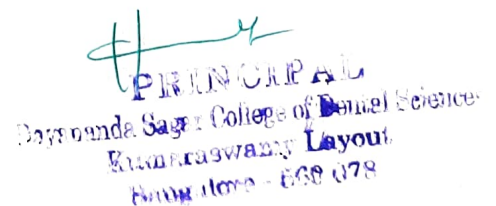 PRINCIPAL
Dayananda Sagar College of Dental Sciences
Kumaraswamy Layout
Bangalore - 560 078